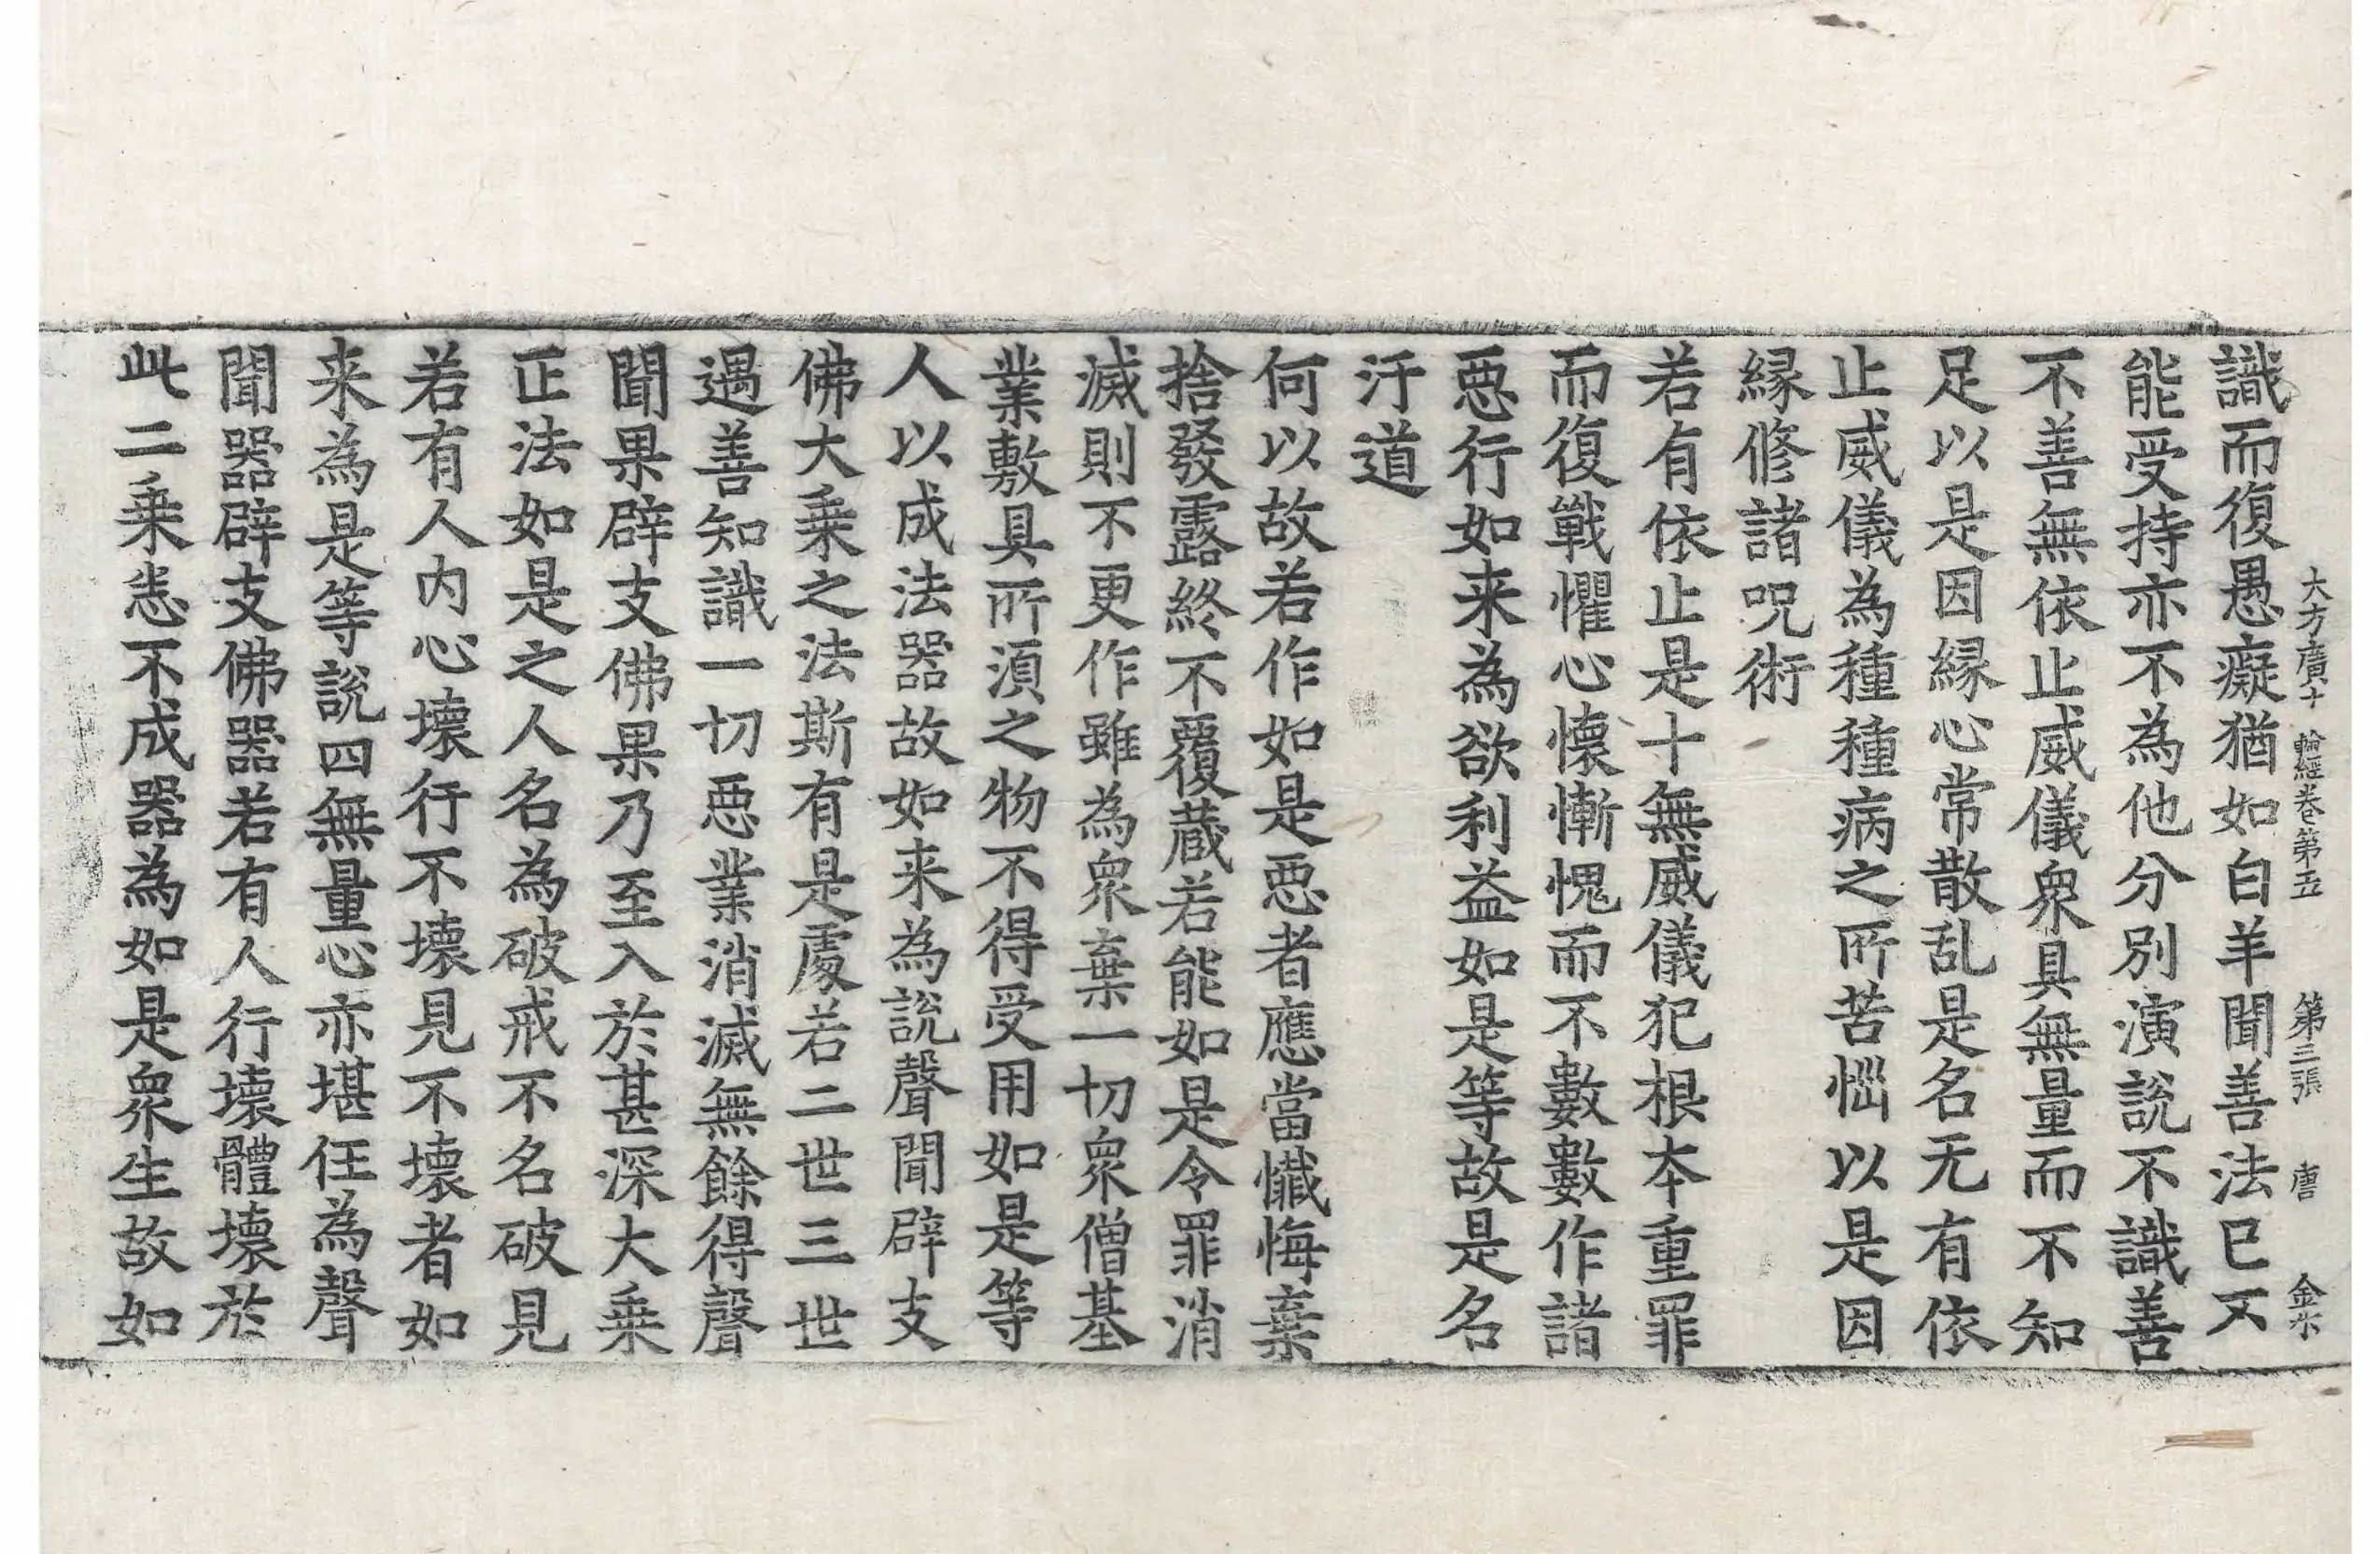 大方廣十輪經卷第五 第三張 唐 金才
識而復愚癡猶如白羊聞善法已不
能受持亦不為他分別演說不識善
不善無依止威儀衆具無量而不知
足以是因縁心常散乱是名无有依
止威儀為種種病之所苦惱以是因
縁修諸呪術
若有依止是十無威儀犯根本重罪
而復戰懼心懷慚愧而不數數作諸
惡行如来為欲利益如是等故是名
汙道
何以故若作如是惡者應當懺悔棄
捨發露終不覆蔵若能如是令罪消
滅則不更作雖為衆棄一切衆僧基
業敷具所湏之物不得受用如是等
人以成法器故如来為說聲聞辟支
佛大乗之法斯有是處若二世三世
遇善知識一切惡業消滅無餘得聲
聞果辟支佛果乃至入於甚深大乗
正法如是之人名為破戒不名破見
若有人内心壞行不壞見不壞者如
来為是等說四無量心亦堪任為聲
聞器辟支佛器若有人行壞體壞於
此二乗恙不成器為如是衆生故如